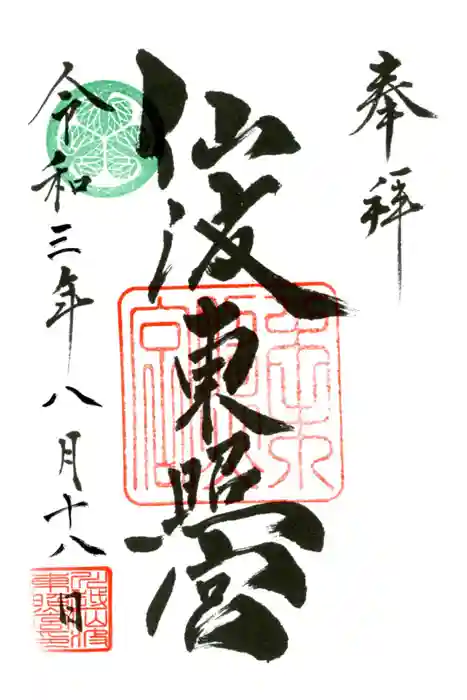 奉拝
仙波東照宮
令和三年八月十八日
東照宮
川越仙波東照宮印